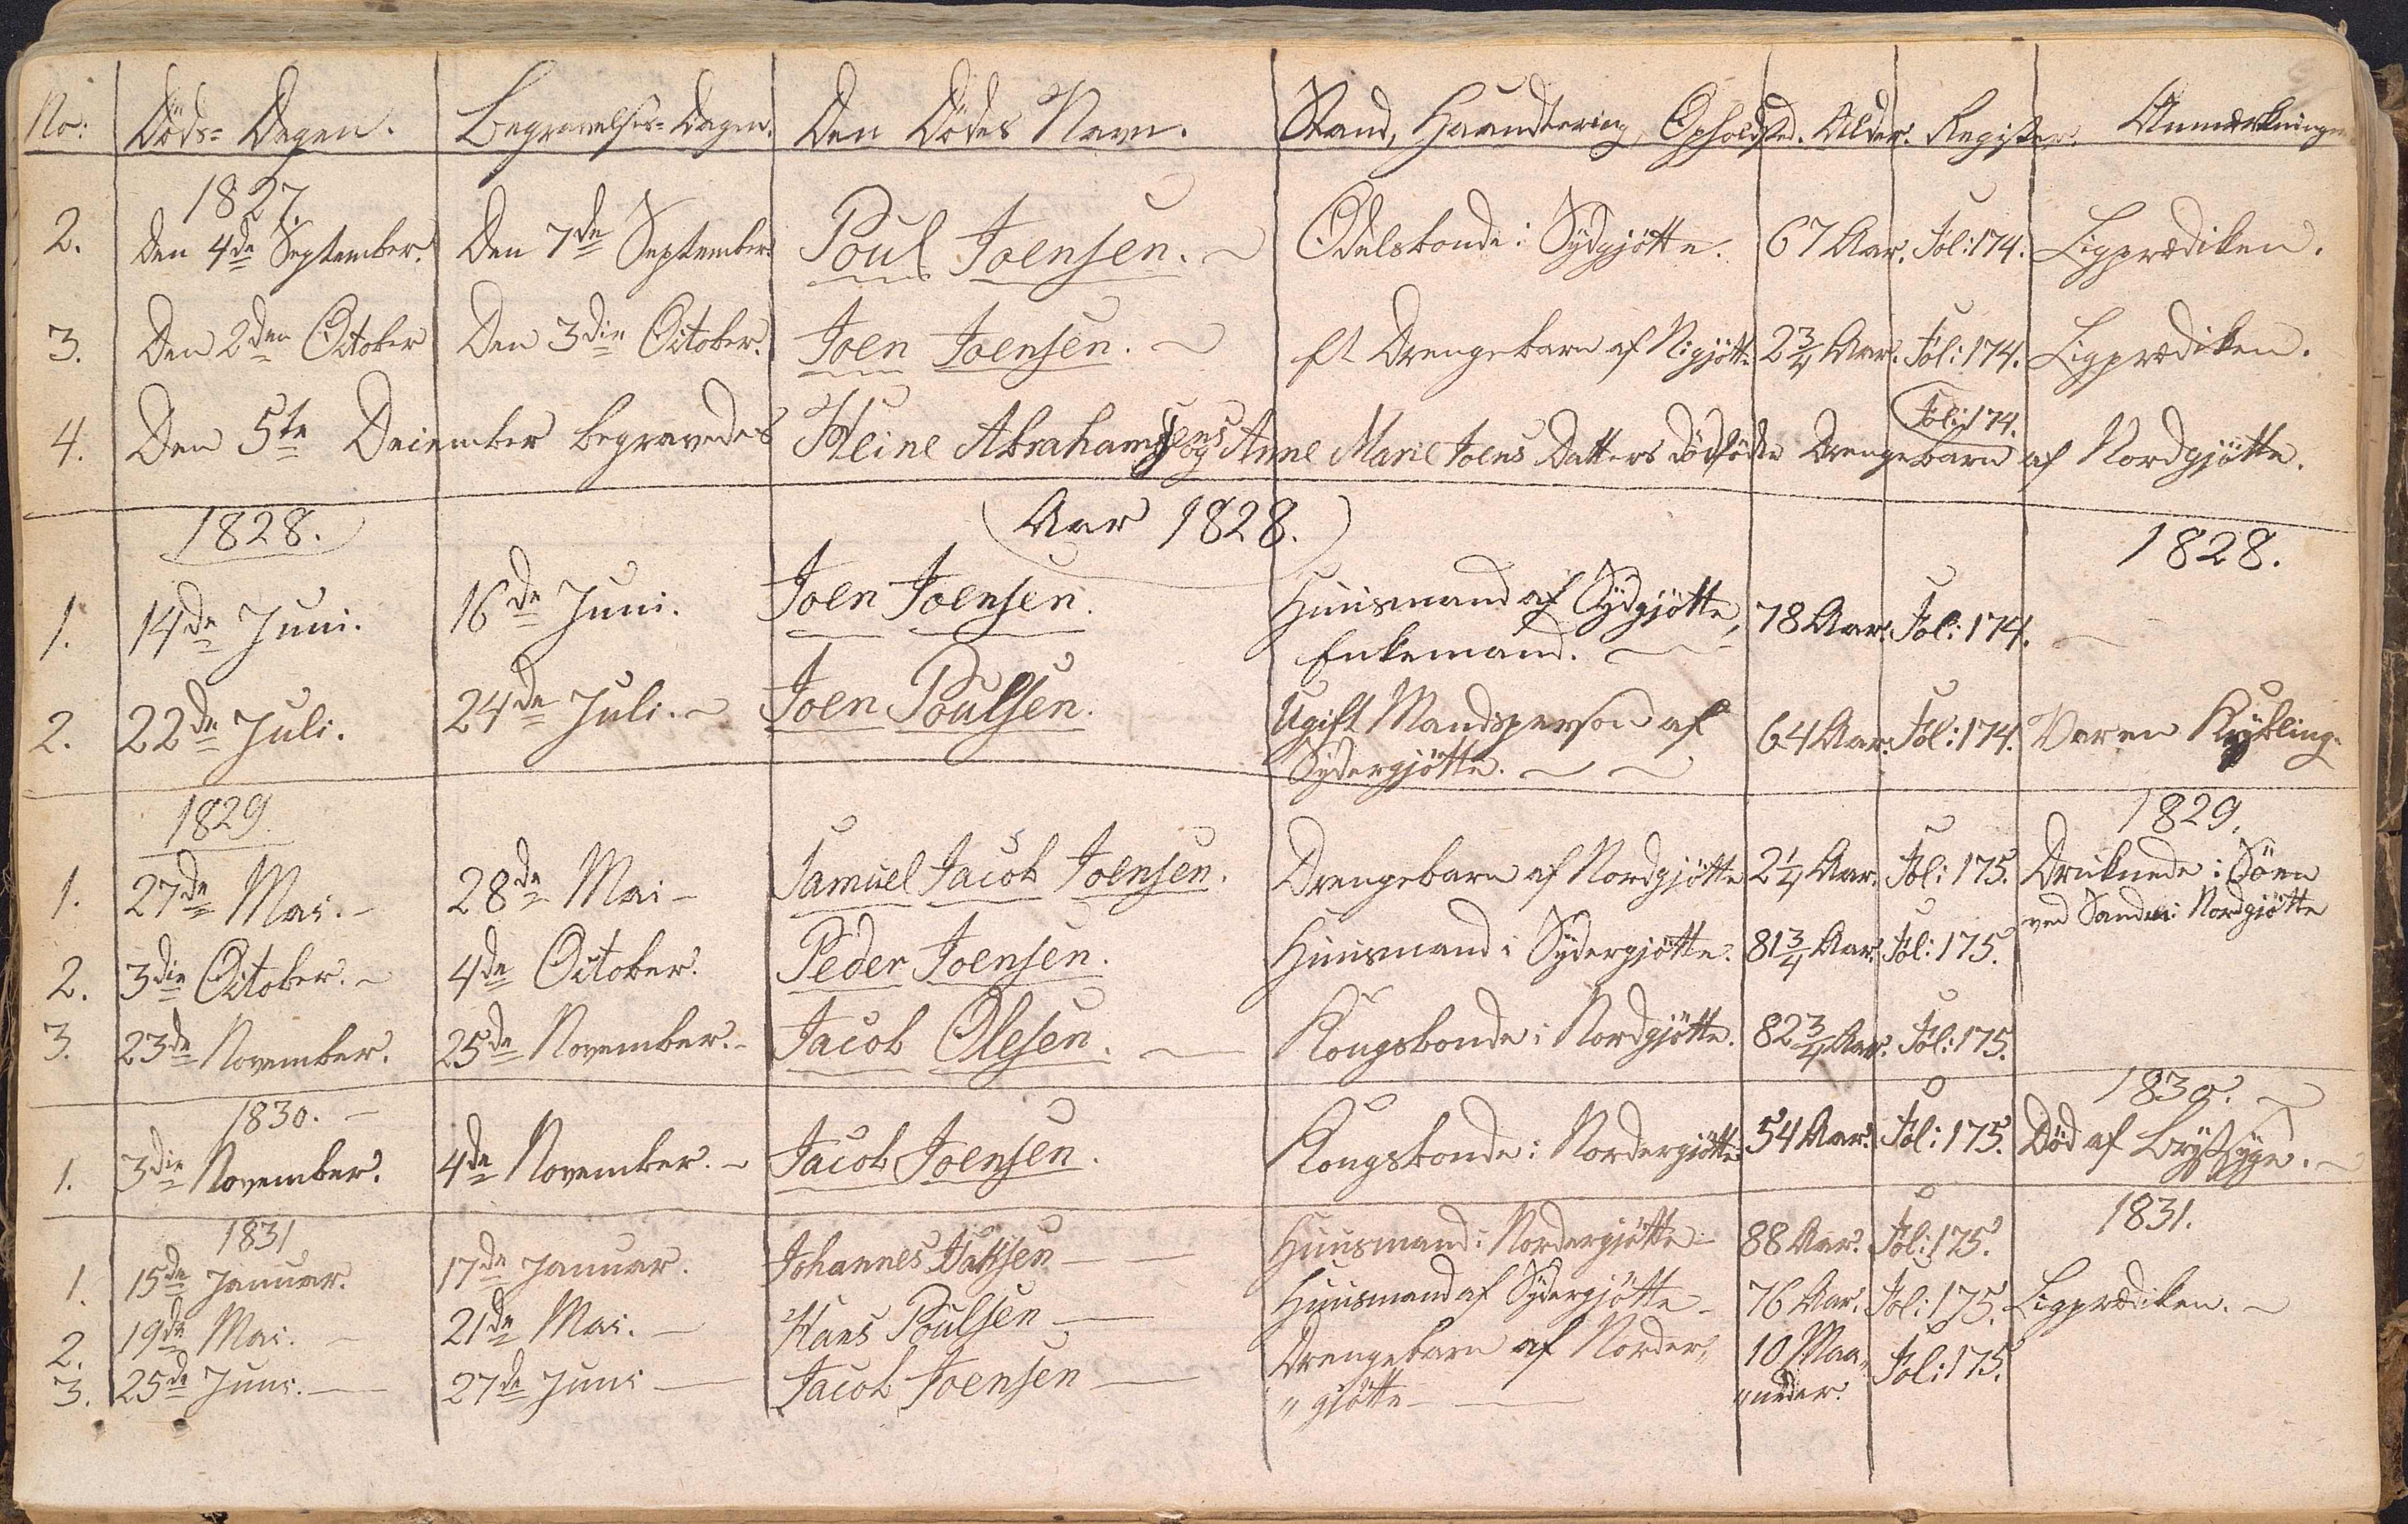 No: Döds-Dagen. Begravelses-Dagen. Den Dödes Navn. Stand, Haandtering, Opholdsted. Alder. Register. Anmærkninger
1827.
2. Den 4de September. Den 7de September Poul Joensen. Odelsbonde i Sydgjötte. 67 Aar. Fol: 174. Ligprædiken.
3. Den 2den October Den 3die October. Joen Joensen. et Drengebarn af Nigjötte 2 3/4 Aar. Fol: 174. Ligprædiken.
Fol: 174.
4. Den 5te December begravedes Heine Abrahamsens og Anne Marie Joens Datters dödfödte Drengebarn af Nordgjötte.
1828. Aar 1828. 1828.
1. 14de Juni. 16de Juni. Joen Joensen. Huusmand af Sydgjötte, 78 Aar. Fol: 174.
Enkemand.
2. 22de Juli. 24de Juli. Joen Poulsen. Ugift Mandsperson af 64 Aar. Fol: 174. Var en Kykling.
Sydergjötte.
1829. 1829.
1. 27de Mai. 28de Mai Samuel Jacob Joensen. Drengebarn af Nordgjötte 2 1/4 Aar. Fol: 175. Druknede i Söen
ved Sanden i Nordgjötte
2. 3die October. 4de October. Peder Joensen. Huusmand i Sydergjötte. 81 3/4 Aar. Fol: 175.
3. 23de November. 25de November. Jacob Olesen. Kongsbonde i Nordgjötte. 82 3/4 Aar. Fol: 175.
1830. 1830.
1. 3die November. 4de November. Jacob Joensen. Kongsbonde i Nordergjötte. 54 Aar. Fol: 175. Död af Brystsyge.
1831 1831.
1. 15de Januar. 17de Januar. Johannes Isaksen Huusmand i Nordergjötte 88 Aar. Fol: 175.
2. 19de Mai. 21de Mai. Hans Poulsen Huusmand af Sydergjötte 76 Aar. Fol: 175. Ligprædiken.
3. 25de Juni. 27de Juni Jacob Joensen Drengebarn af Norder„ 10 Maa„ Fol: 175.
„gjötte „neder.